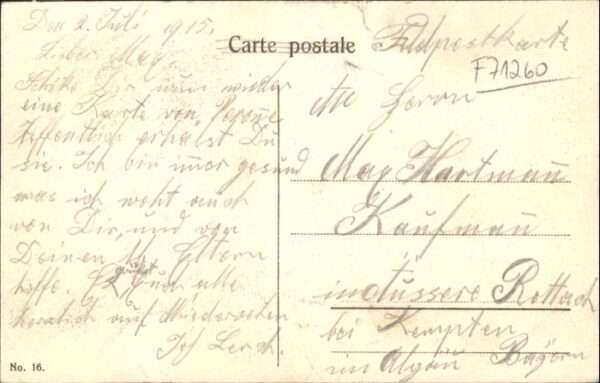 Den 2. Juli 1915.
Lieber Max.
Schike Dir nun wieder
eine Karte von Peronne
hoffentlich erhalst Du
sie. Ich bin imer gesund
was ich wohl auch
von Dir, und von
Deinen Eltern
hoffe. Es grüßt Euch alle
herzlich auf Wiedersehen
Jos Lerch.
No. 16.
Carte postale
Feldpostkarte
F71260
An Herrn
Max Hartmañ
Kaufmañ
in äussere Rottach
bei Kempten
im Algäu Bayern